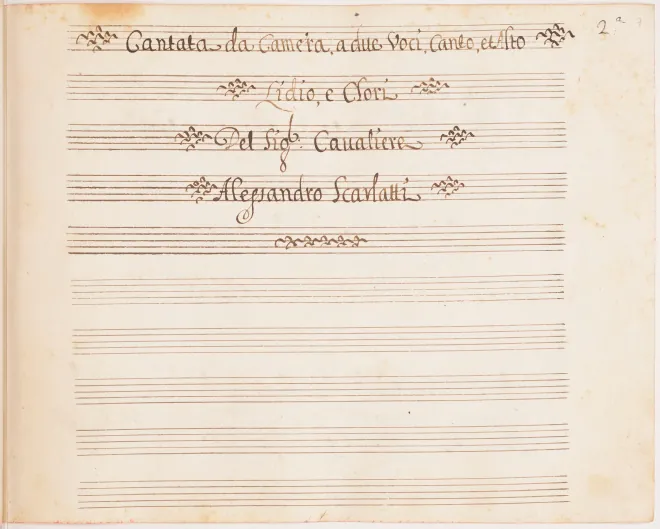 Cantata da Camera, a due Voci, Canto, et Alto
2ª
Lidio, e Clori
Del Sigr. Caualiere
Alessandro Scarlatti